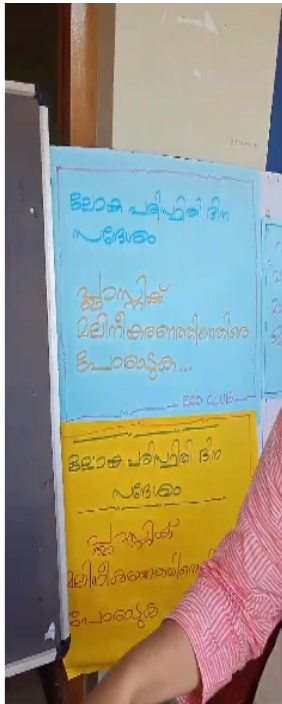 ലോക പരിസ്ഥിതി ദിന
സന്ദേശം
പ്ലാസ്റ്റിക്
മലിനീകരണത്തിനെതിരെ
പോരാടുക...
ECO CLUB
ലോക പരിസ്ഥിതി ദിന
സന്ദേശം
പ്ലാസ്റ്റിക്
പോരാടുക